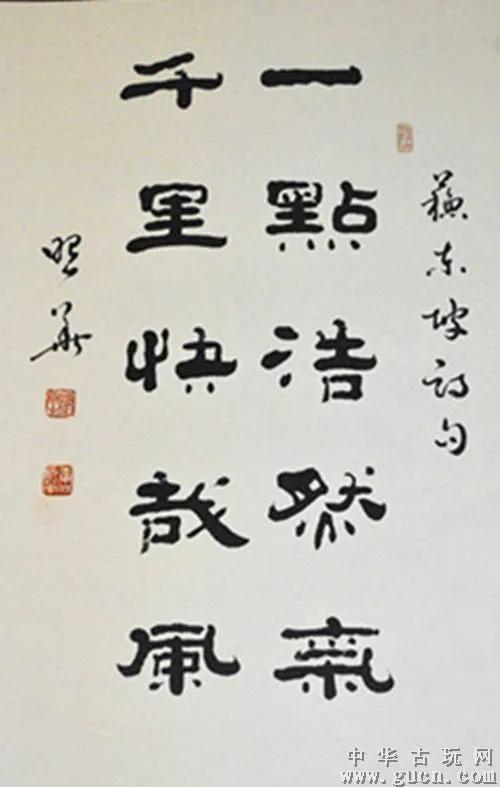 蘇東坡詩句
一點浩然氣
千里快哉風
照華
中华古玩网
www.gucn.com